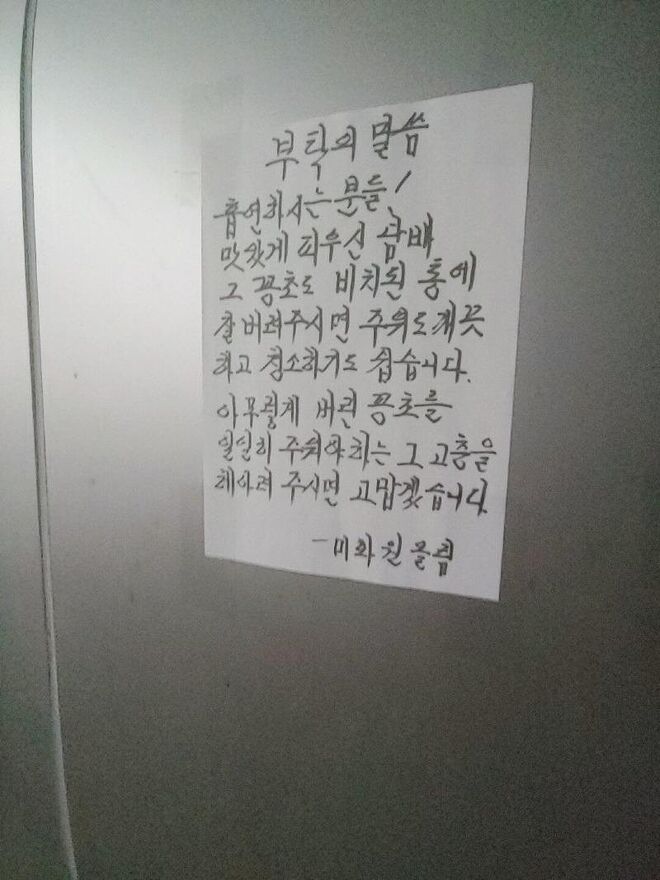 부탁의 말씀
흡연하시는 분들!
맛있게 피우신 담배
그 꽁초도 비치된 통에
잘 버려주시면 주위도 깨끗
하고 청소하기도 쉽습니다.
아무렇게 버린 꽁초를
일일히 주워야하는 그 고충을
헤아려 주시면 고맙겠습니다.
-미화원 올림